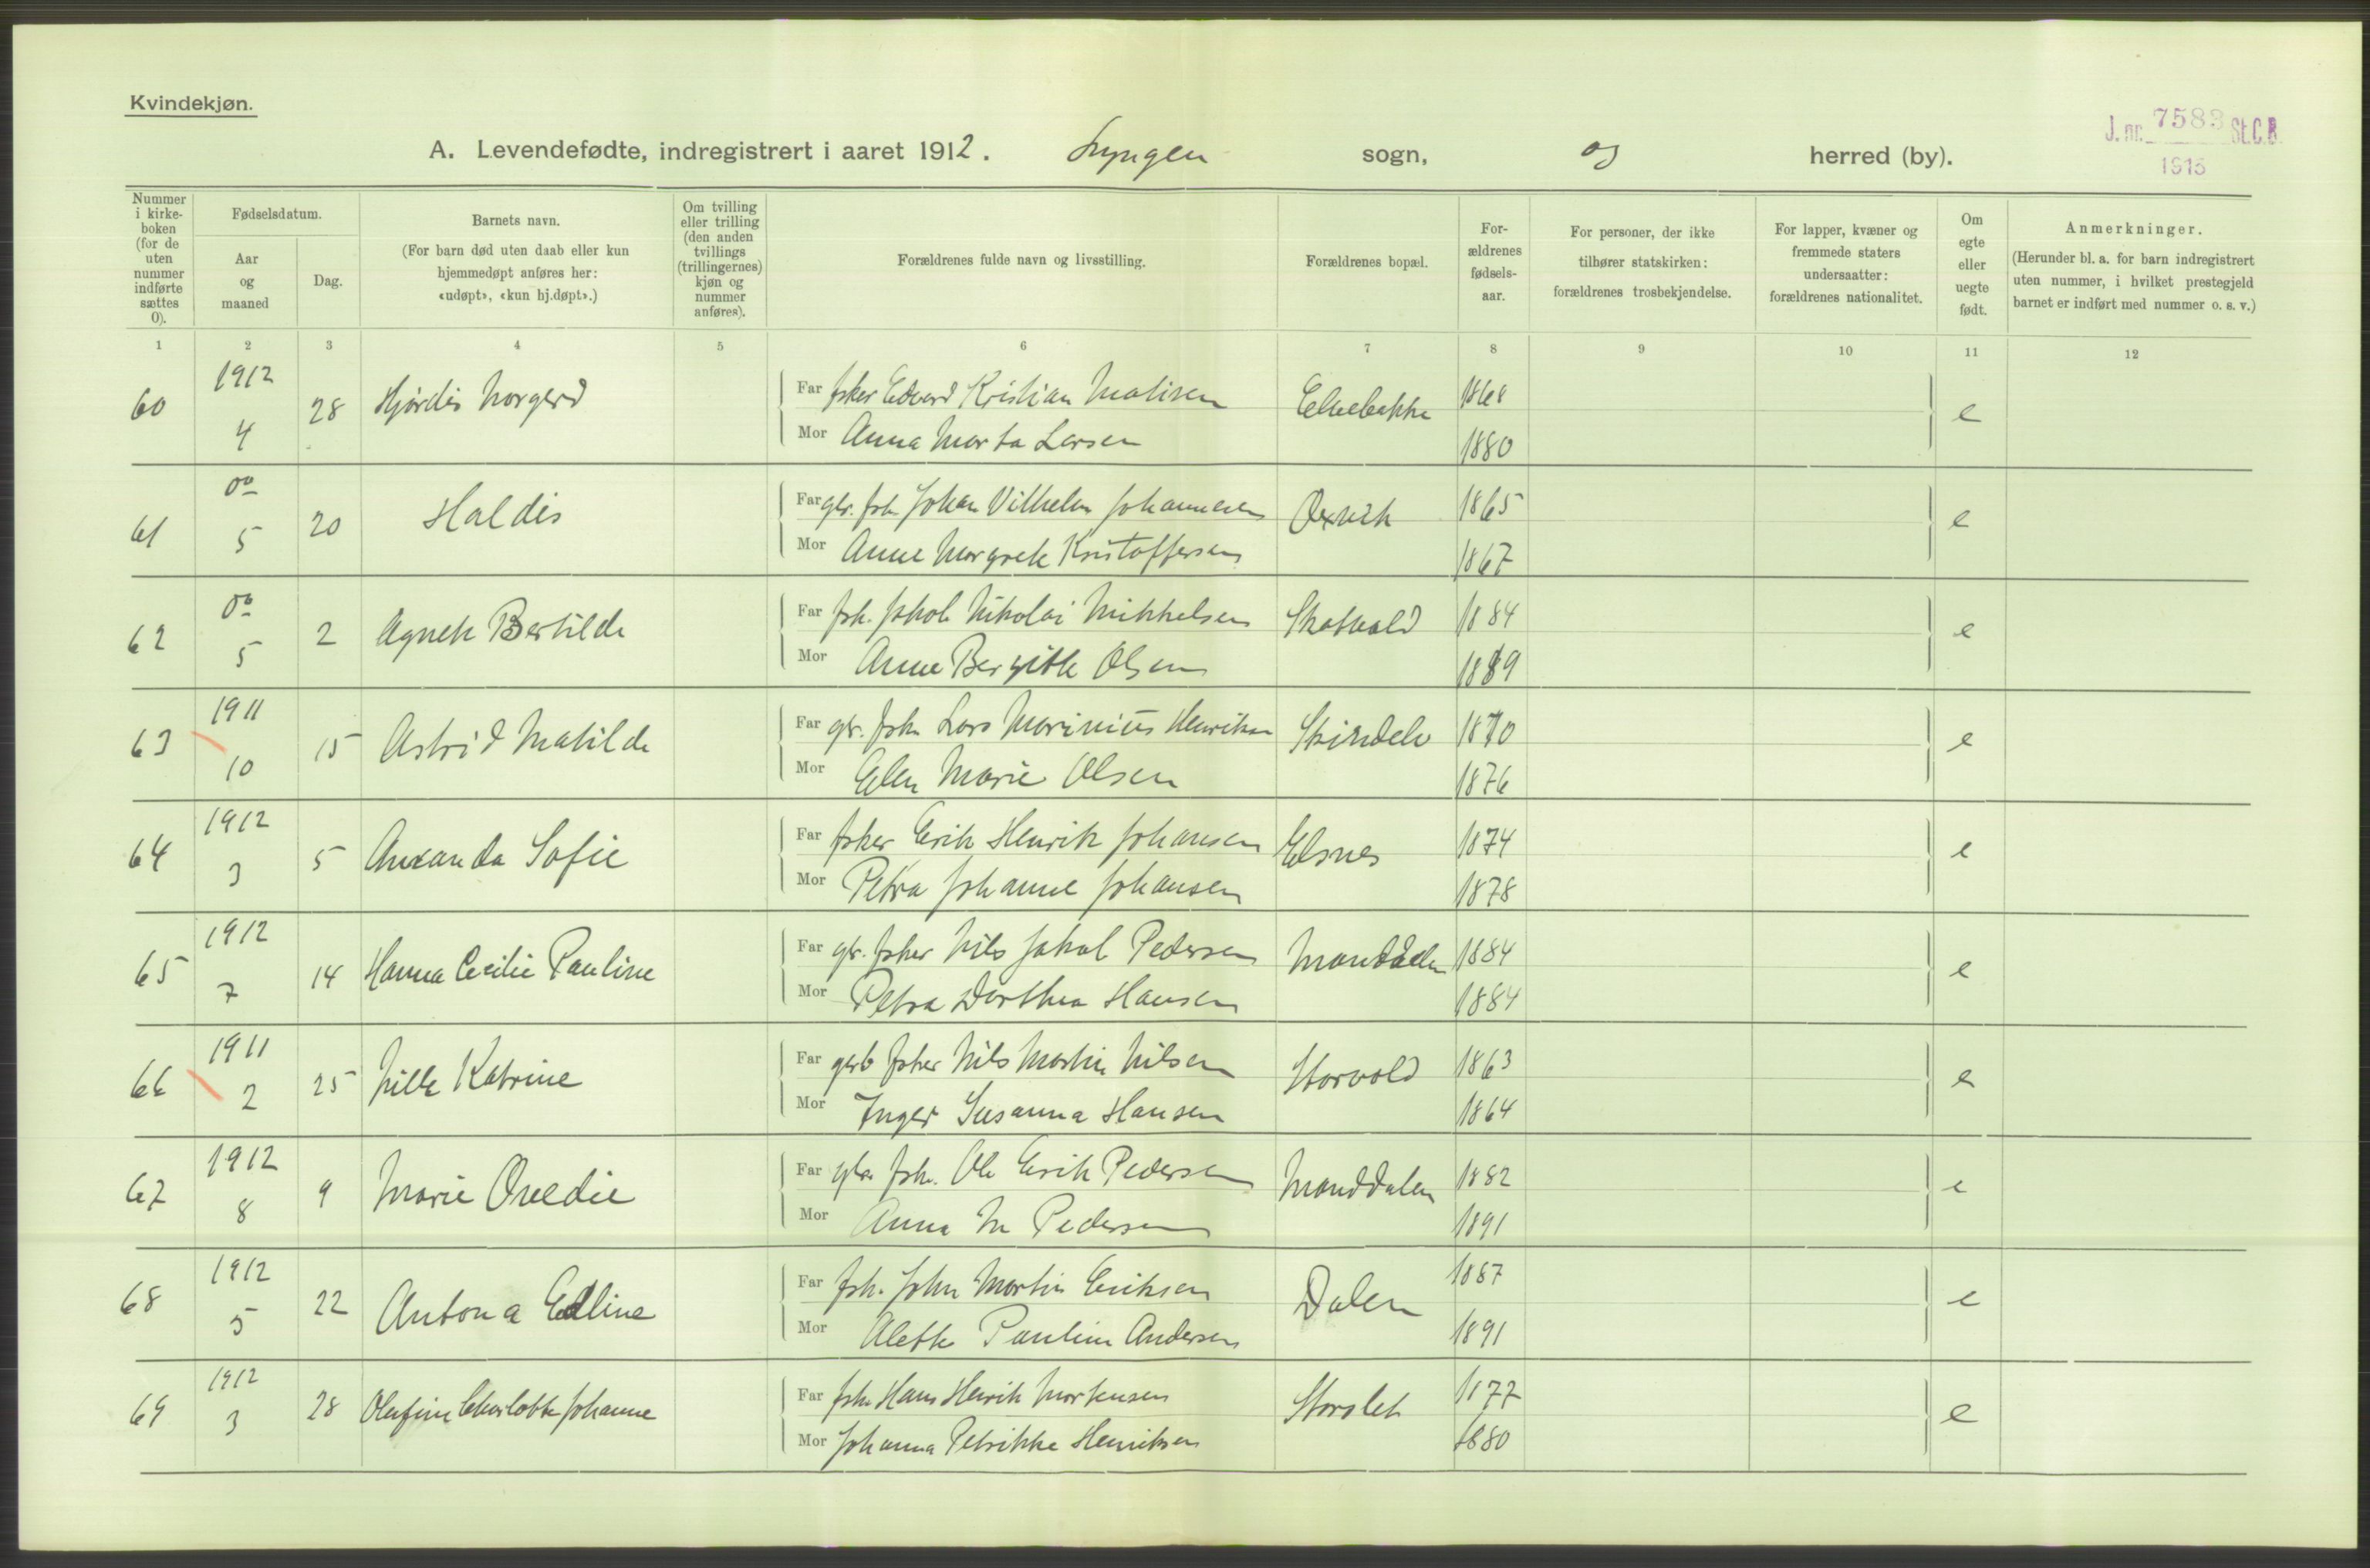 Kvindekjøn.
J. nr. 7583 St.C.B.
1913
A. Levendefødte, indregistrert i aaret 1912. Lyngen sogn, og herred (by).
Nummer i kirke-boken (for de uten nummer indførte sættes 0).
Fødselsdatum.
Aar og maaned
Dag.
Barnets navn.
(For barn død uten daab eller kun hjemmedøpt anføres her: «udøpt», «kun hj.døpt».)
Om tvilling eller trilling (den anden tvillings (trillingernes) kjøn og nummer anføres).
Forældrenes fulde navn og livsstilling.
Forældrenes bopæl.
For-ældrenes fødsels-aar.
For personer, der ikke tilhører statskirken: forældrenes trosbekjendelse.
For lapper, kvæner og fremmede staters undersaatter: forældrenes nationalitet.
Om egte eller uegte født.
Anmerkninger.
(Herunder bl. a. for barn indregistrert uten nummer, i hvilket prestegjeld barnet er indført med nummer o. s. v.)
1 2 3 4 5 6 7 8 9 10 11 12
60 1912 4 28 Hjördis Norgerd
Far fsker Edvard Kristian Matisen Elvebakke 1868 e
Mor Anna Marta Larsen 1880
61 do 5 20 Haldis
Far gbr. fsk Johan Vilhelm Johannesen Oxvik 1865 e
Mor Anne Margrete Kristoffersen 1867
62 do 5 2 Agnete Bertilde
Far fsk. Jakob Nikolai Mikkelsen Skatvold 1884 e
Mor Anne Bergitte Olsen 1889
63 1911 10 15 Astrid Matilde
Far gbr. fsk Lars Marinius Henriksen 1870 e
Mor Elen Marie Olsen 1876
64 1912 3 5 Amanda Sofie
Far fsker Erik Henrik Johansen Elsnes 1874 e
Mor Petra Johanne Johansen 1878
65 1912 7 14 Hanna Cecilie Pauline
Far gbr. fsker Nils Jakob Pedersen Manddalen 1884 e
Mor Petra Dorthea Hansen 1884
66 1911 2 25 Katrine
Far gbr fsker Nils Martin Nilsen Storvold 1863 e
Mor Inger Susanna Hansen 1864
67 1912 8 9 Marie Ovedie
Far gbr. fsk. Ole Erik Pedersen Manddalen 1882 e
Mor Anna M Pedersen 1891
68 1912 5 22 Antona Edline
Far fsk. John Martin Eriksen Dalen 1887 e
Mor Alette Pauline Andersen 1891
69 1912 3 28 Olufine Charlotte Johanne
Far fsk Hans Henrik Mortensen Storslet 1877 e
Mor Johanna Petrikke Henriksen 1880